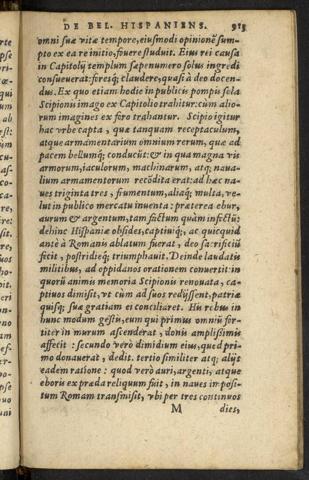 DE BEL. HISPANIENS. 913
omni suæ vitæ tempore, eiusmodi opinionẽ sum-
pto ex ea re initio, fovere studuit. Eius rei causa
in Capitolij templum sæpenumero solus ingredi
consueuerat: foresq; claudere, quasi à deo docen-
dus. Ex quo etiam hodie in publicis pompis sola
Scipionis imago ex Capitolio trahitur: cùm alio-
rum imagines ex foro trahantur. Scipio igitur
hac vrbe capta, que tanquam receptaculum,
atque armamentarium omnium rerum, que ad
pacem bellumq; conducũt: & in qua magna vis
armorum, iaculorum, machinarum, atq; naua-
lium armamentorum recõdita erat: ad hæc na-
ues triginta tres, frumentum, aliaq; multa, ve-
lut in publico mercatu inuenta: præterea ebur,
aurum & argentum, tam factum quàm infectũ:
dehinc Hispaniæ obsides, captiuiq;, ac quicquid
antè à Romanis ablatum fuerat, deo sacrificiũ
fecit, postridieq; triumphauit. Deinde laudatis
militibus, ad oppidanos orationem conuertit: in
quorũ animis memoria Scipionis renouata, ca-
ptiuos dimisit, vt cùm ad suos redijssent, patriæ
quisq; suæ gratiam ei conciliaret. His rebus in
hunc modum gestis, eum qui primus omniũ for-
titer in murum ascenderat, donis amplissimis
affecit: secundo verò dimidium eius, quod pri-
mo donauerat, dedit. tertio similiter atq; alijs
eadem ratione: quod verò auri, argenti, atque
eboris ex præda reliquum fuit, in naues imposi-
tum Romam transmisit, vbi per tres continuos
M dies,